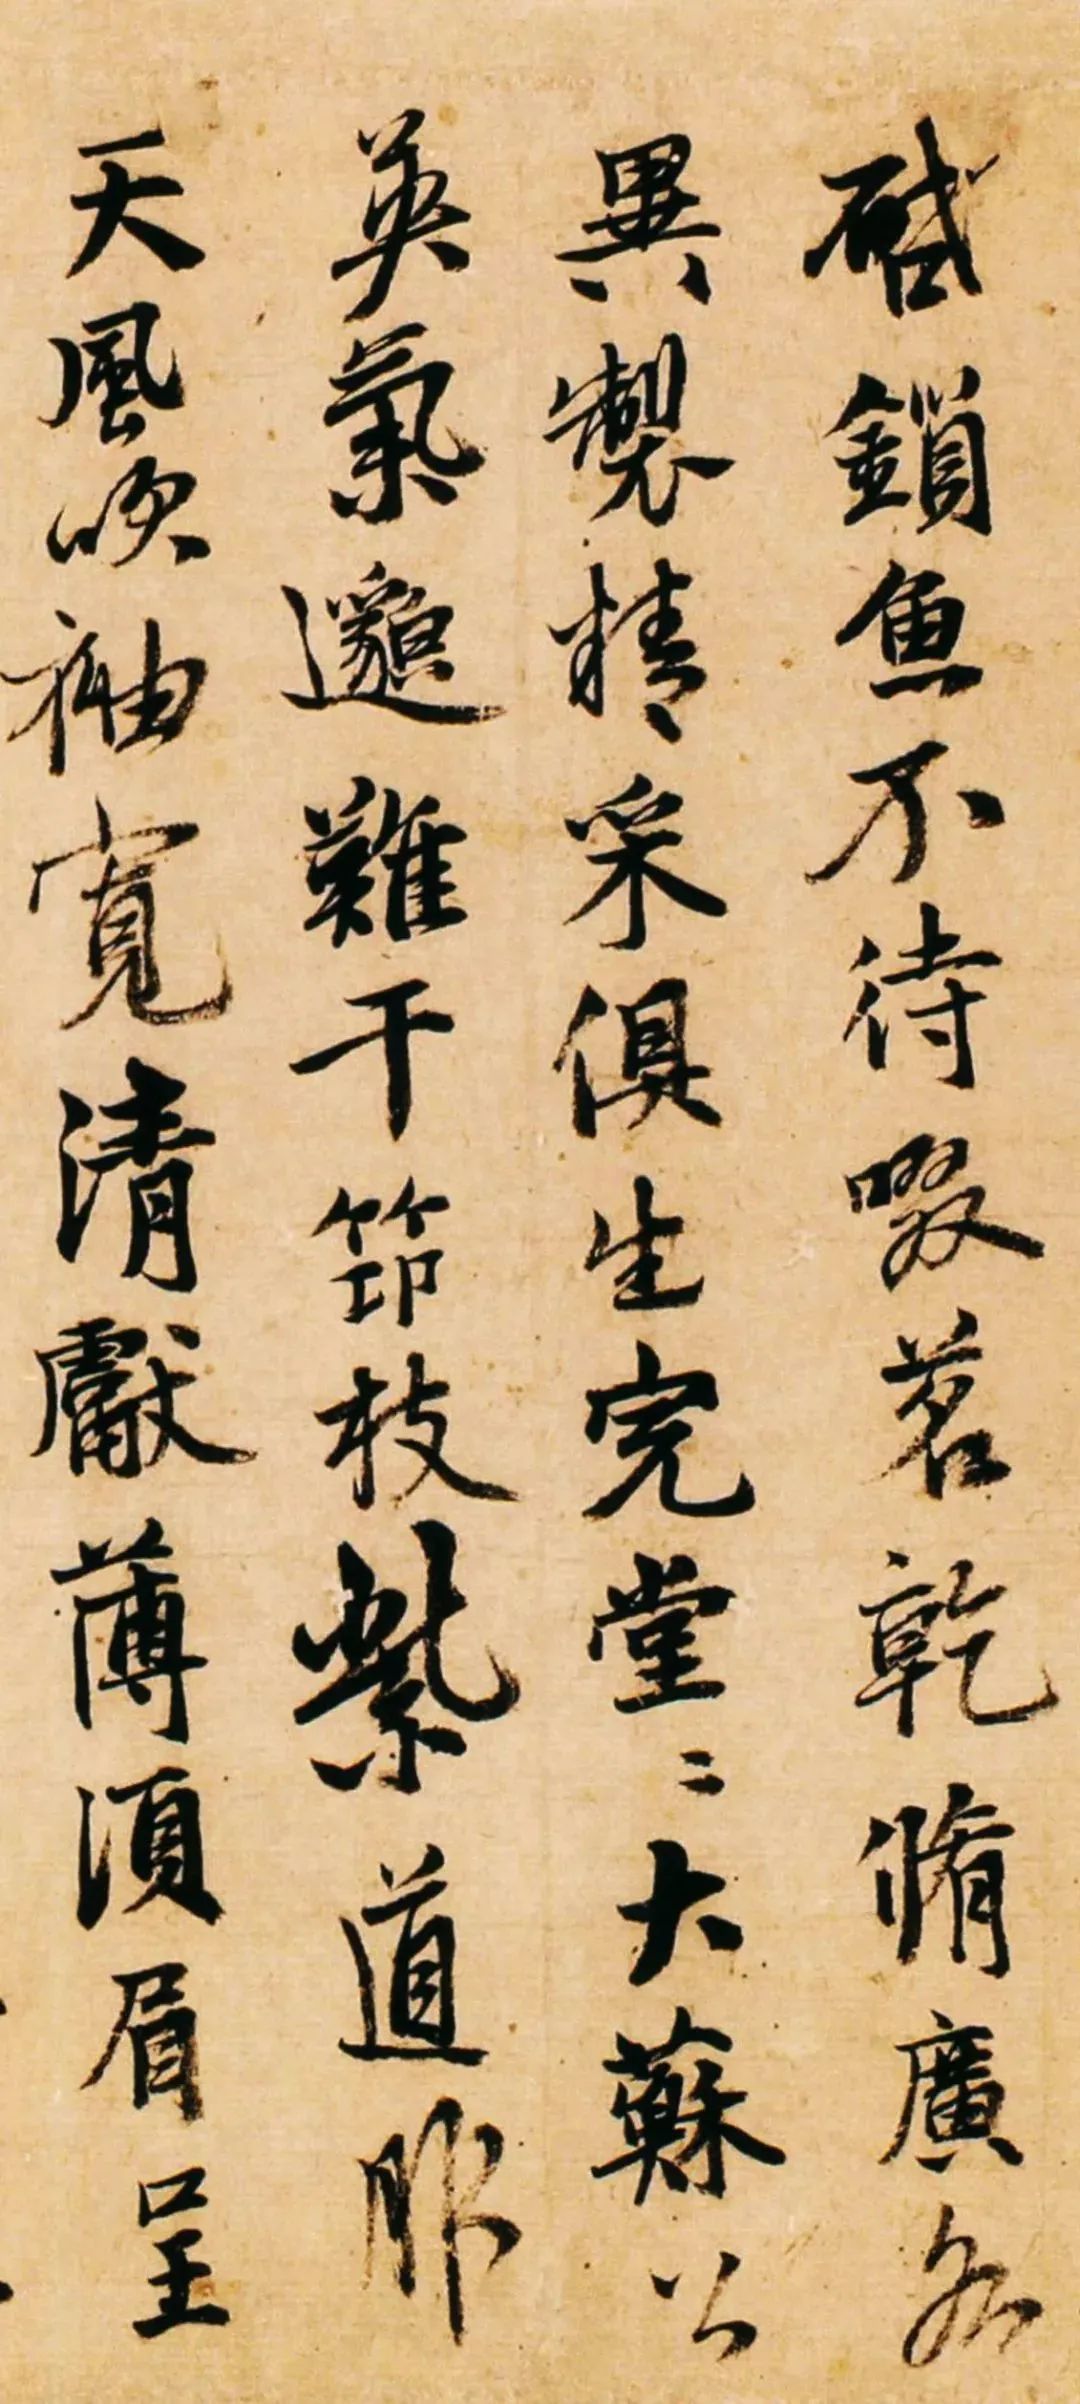 鍼鎖魚不待啜茗乾脩廣各
異製精采俱生完堂〻大蘇公
英氣邈難干筇枝紫道服
天風吹袖寬清獻薄須眉呈